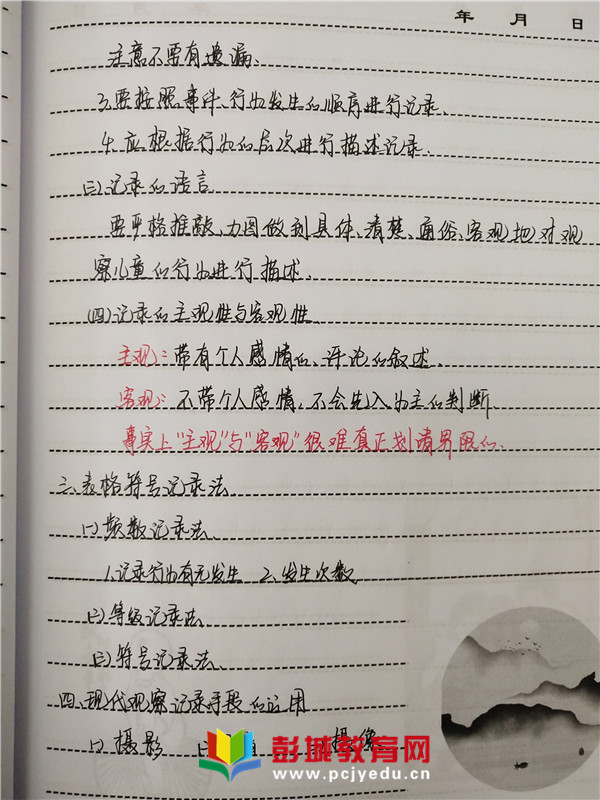 年 月 日
注意不要有遗漏.
3.要按照事件、行为发生的顺序进行记录.
4.应根据行为的层次进行描述记录.
(三)记录的语言
要严格推敲,力图做到具体、清楚、通俗、客观地对观
察儿童的行为进行描述.
(四)记录的主观性与客观性.
主观:带有个人感情的、评论的叙述.
客观:不带个人感情,不会先入为主的判断.
事实上"主观"与"客观"很难真正划清界限的.
三.表格符号记录法
(一)频数记录法.
1.记录行为有无发生 2.发生次数
(二)等级记录法.
(三)符号记录法.
四.现代观察记录手段的运用
(一)摄影 摄像
彭城教育网
www.pcjyedu.cn